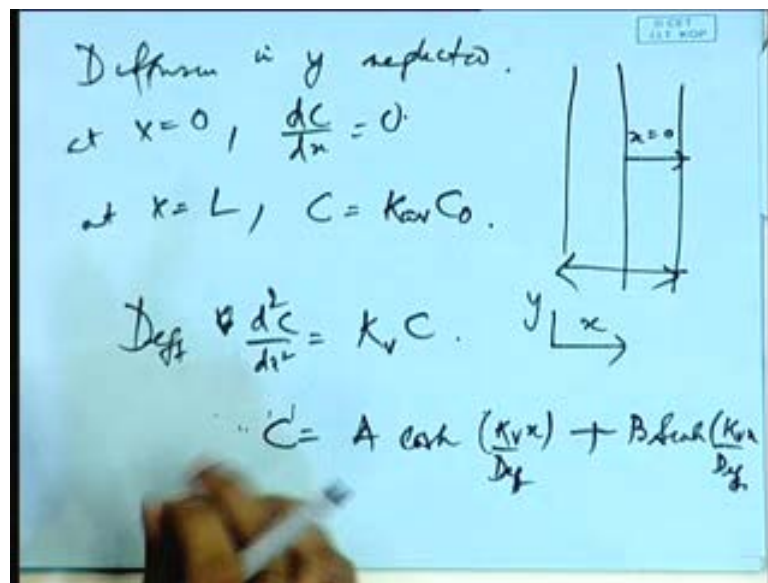 Diffusion in y neglected.
at x=0, dC/dx = 0.
at x=L, C = Kav C0.
x=0
Deff d²C/dx² = Kv C.
y x
C = A cosh (Kv x/Deff) + B sinh (Kv x/Deff
I.I.T. KGP